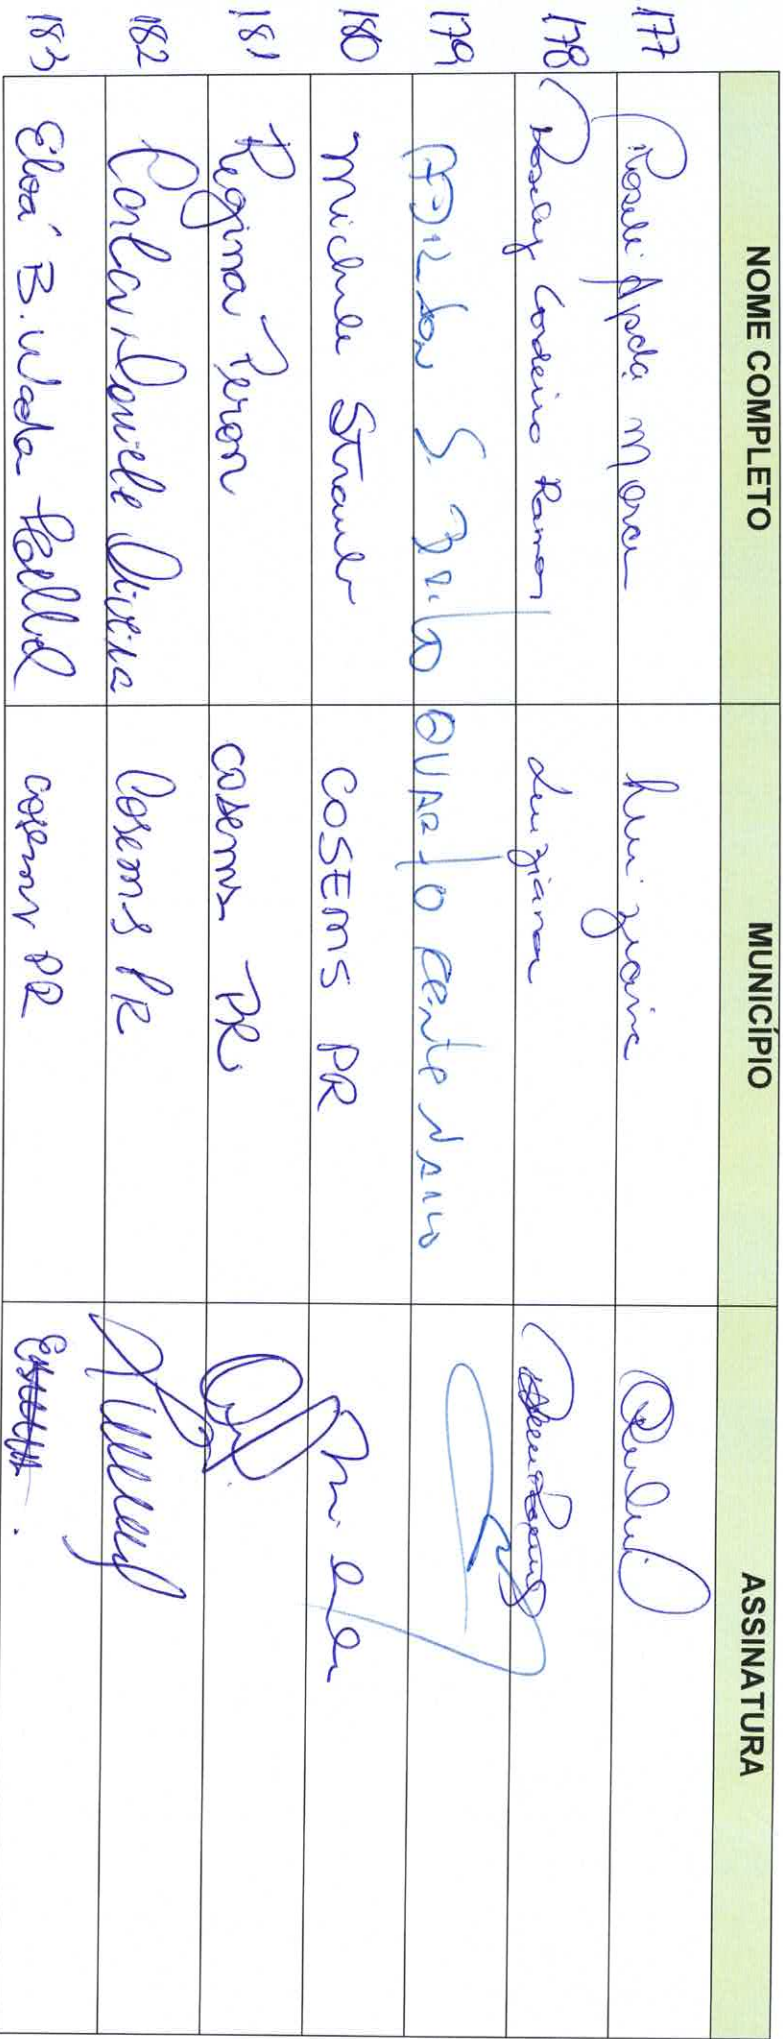 NOME COMPLETO MUNICÍPIO ASSINATURA
177 Roseli Apda Mora Luiziana
178 Rosely Cordeiro Ramos Luiziana
179 S. Brito QUARTO CENTENARIO
180 Michele Straub COSEMS PR
181 Regina Peron COSEMS PR
182 Carla Oliveira Cosems PR
183 Eloá B. Wada COSEMS PR